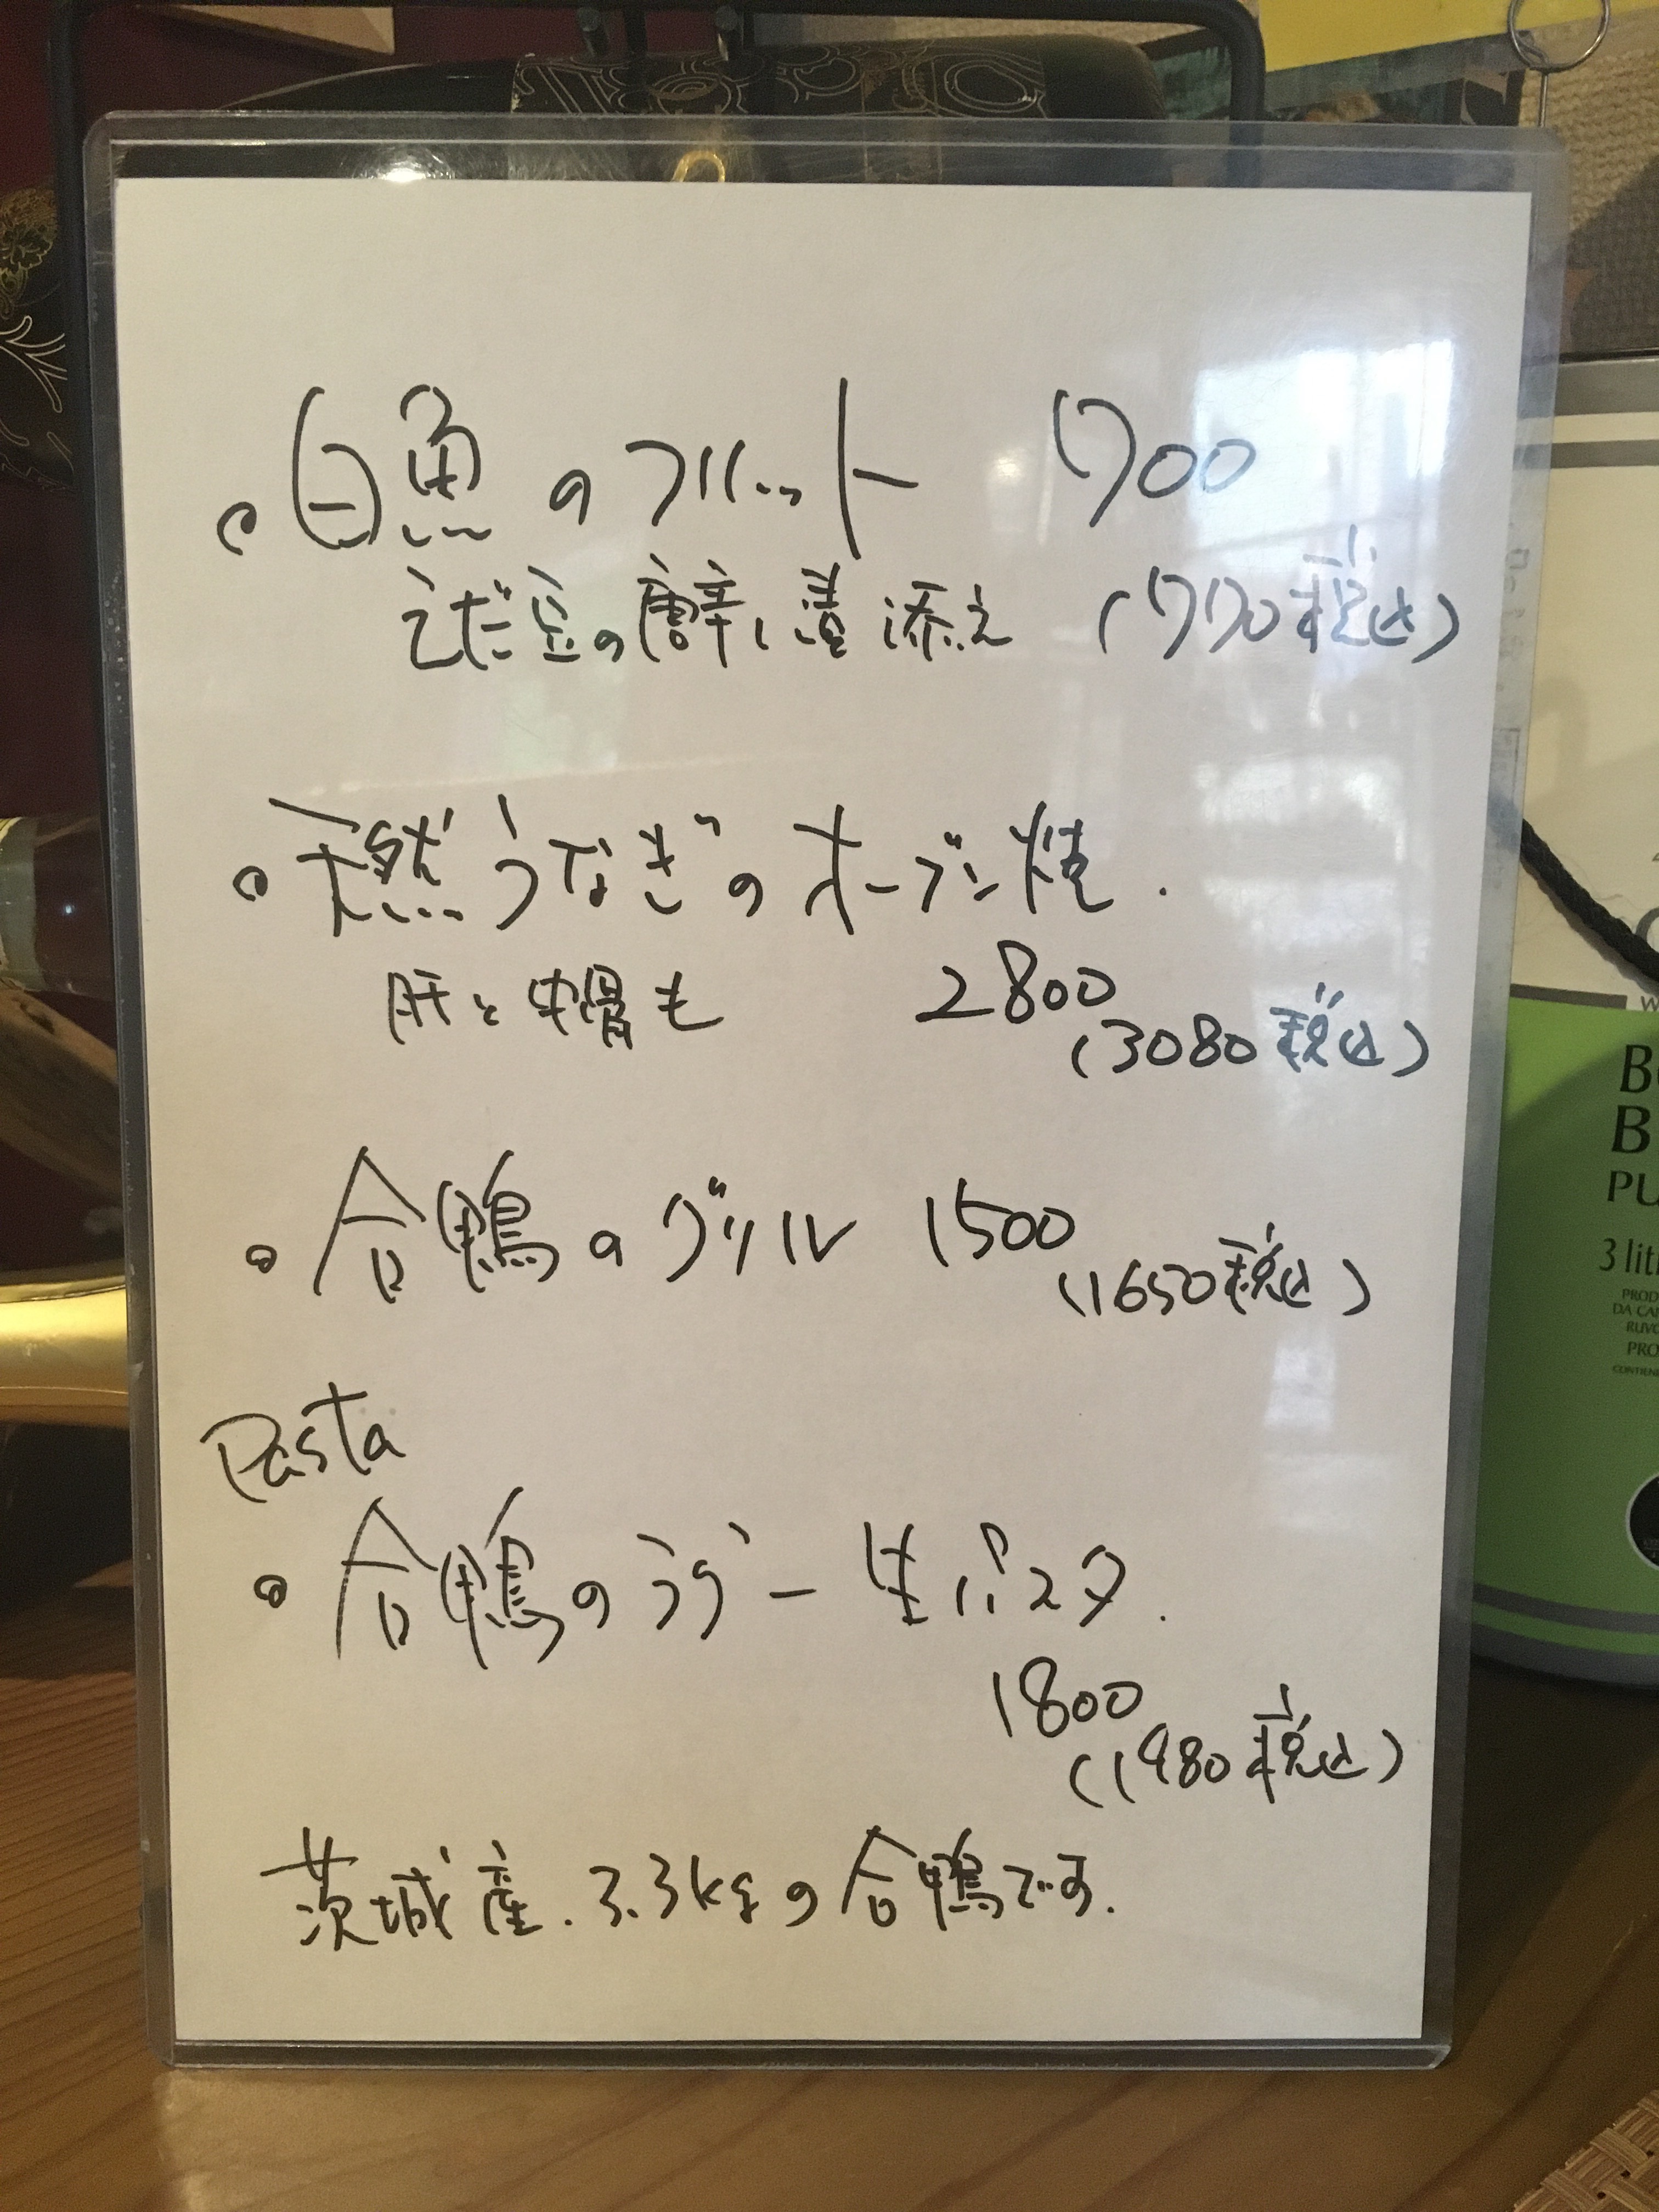 白魚のフリット 700
えだ豆の唐辛し漬添え (770税込)
天然うなぎのオーブン焼.
肝と中骨も 2800
(3080税込)
合鴨のグリル 1500
(1650税込)
Pasta
合鴨のラグー生パスタ.
1800
(1980税込)
茨城産.3.3kgの合鴨です.
3 lit